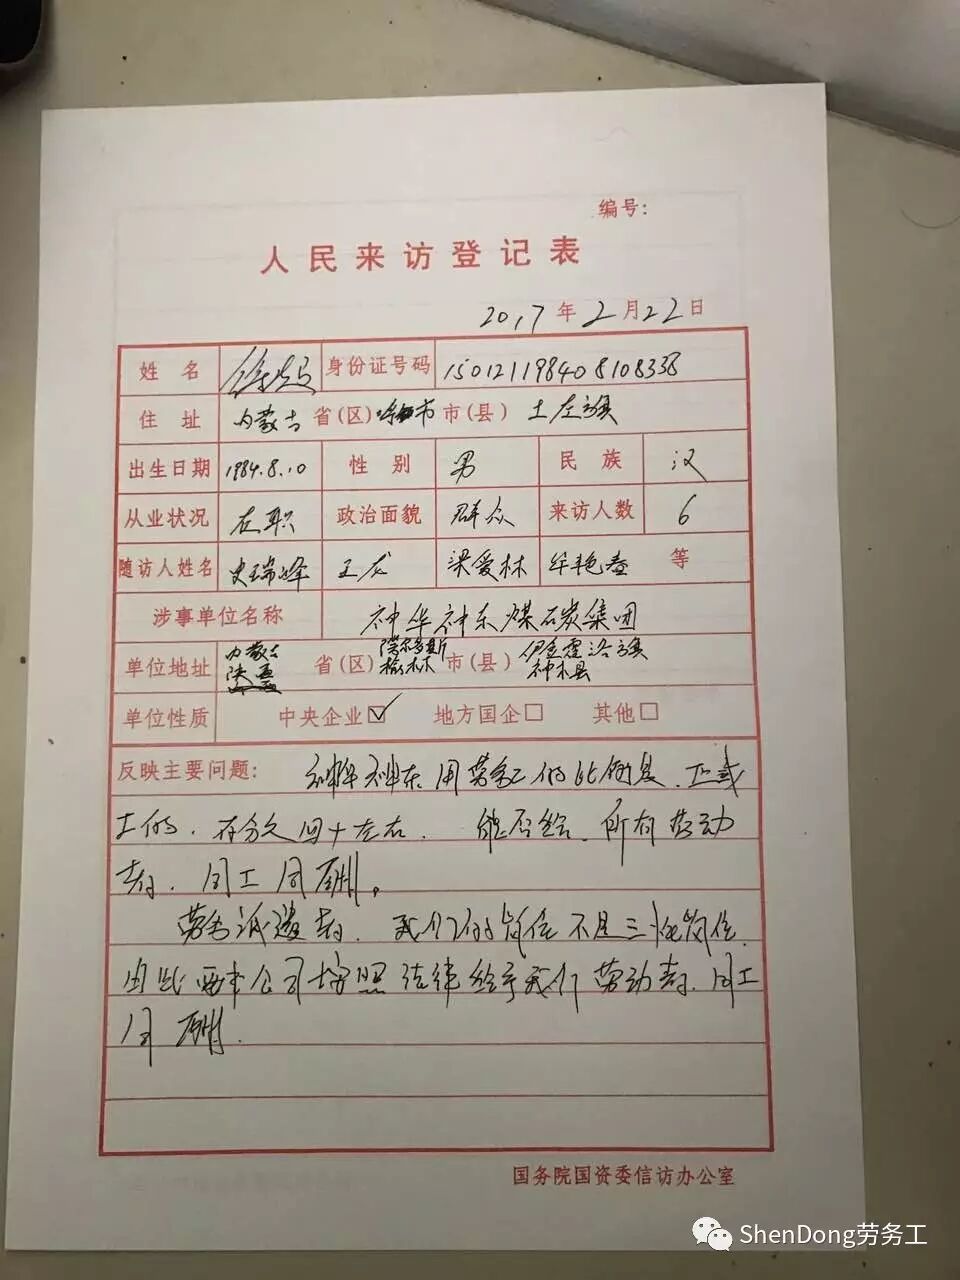 编号：
人民来访登记表
2017年2月22日
姓名 徐 身份证号码 150121198408108338
住址 内蒙古 省(区) 市(县) 土左旗
出生日期 1984.8.10 性别 男 民族 汉
从业状况 在职 政治面貌 群众 来访人数 6
随访人姓名 史瑞峰 王龙 梁爱林 牟艳春 等
涉事单位名称 神华神东煤炭集团
单位地址 内蒙古 陕西 省(区) 鄂尔多斯 榆林 市(县) 伊金霍洛旗 神木县
单位性质 中央企业☑ 地方国企□ 其他□
反映主要问题： 神华神东用劳务工的比例是，正式
工的，百分之四十左右， 能否给，所有劳动
者，同工同酬。
劳务派遣者，我们的岗位不是三性岗位，
由此要求公司按照法律给予我们劳动者，同工
同酬.
国务院国资委信访办公室
ShenDong劳务工